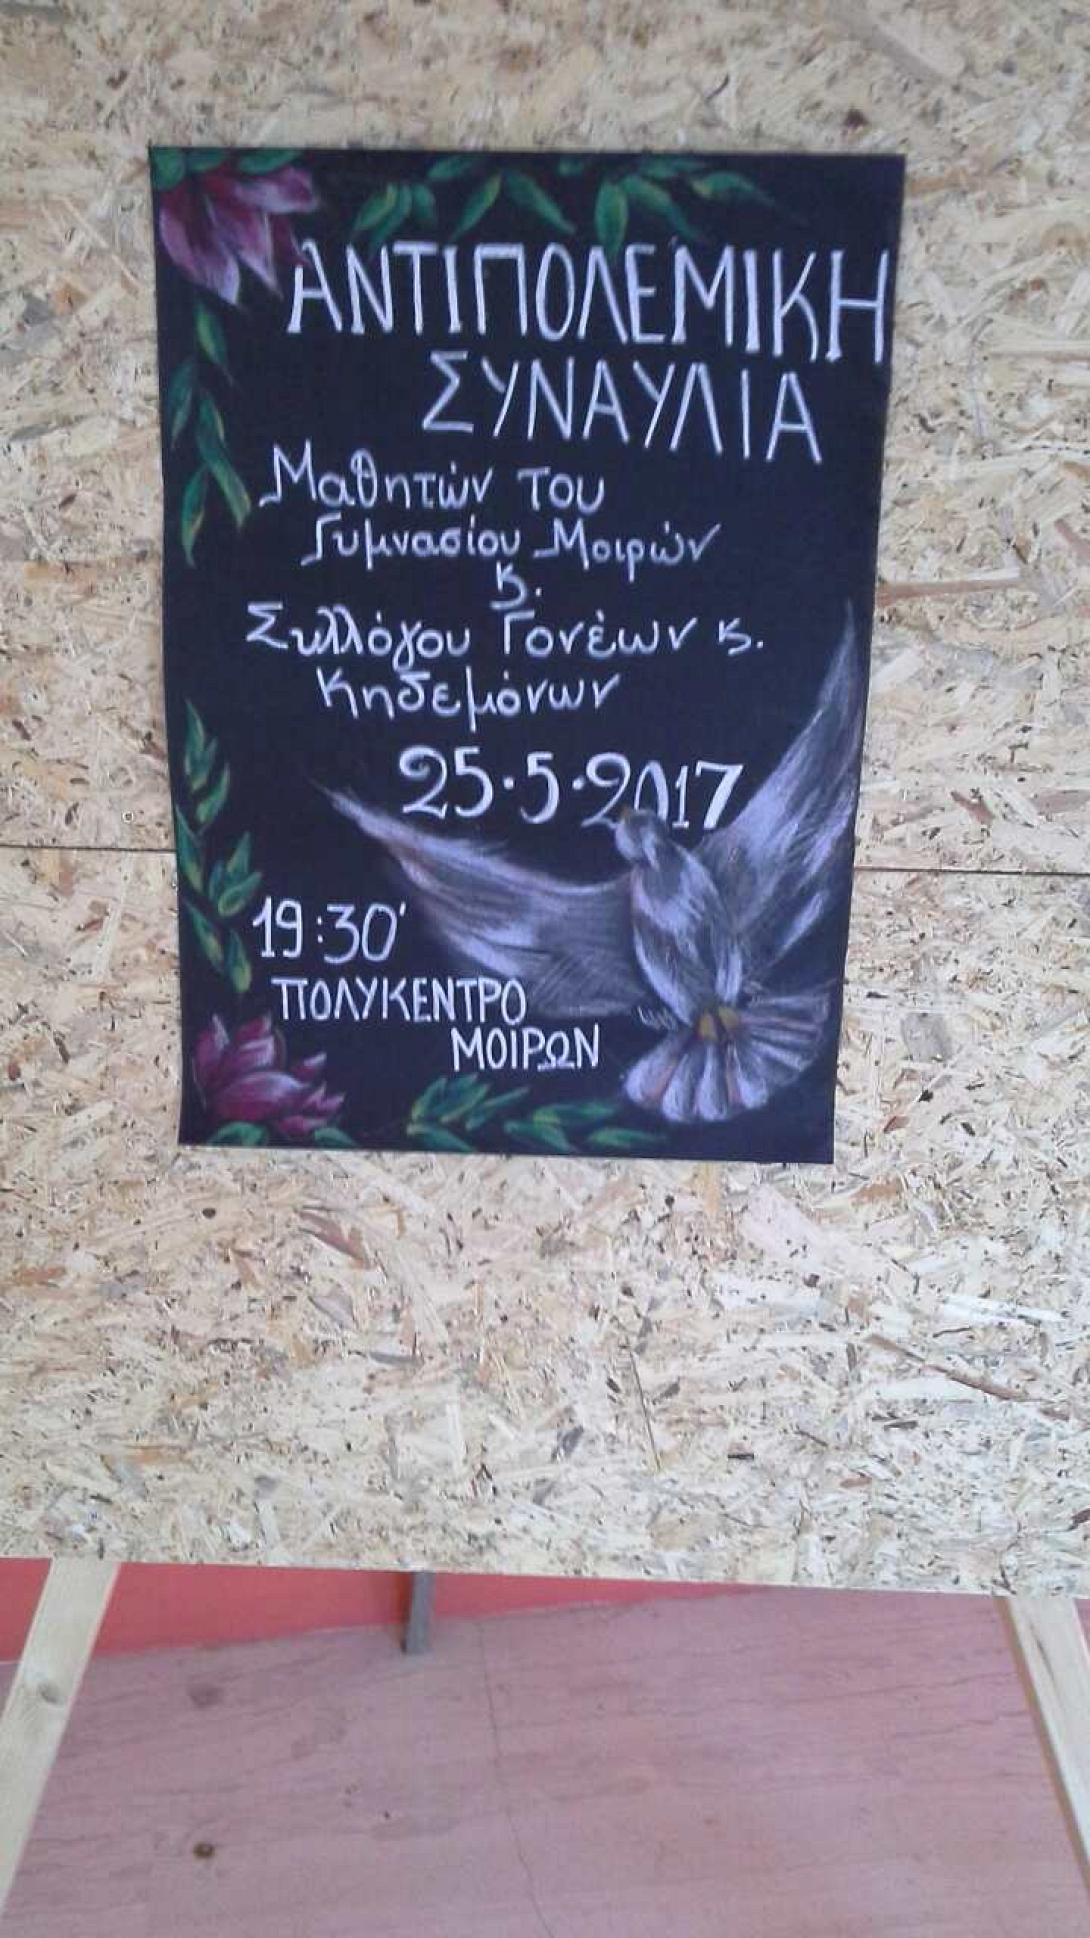 ΑΝΤΙΠΟΛΕΜΙΚΗ
ΣΥΝΑΥΛΙΑ
Μαθητών του
Γυμνασίου Μοιρών
κ.
Συλλόγου Γονέων κ.
Κηδεμόνων
25·5·2017
19:30'
ΠΟΛΥΚΕΝΤΡΟ
ΜΟΙΡΩΝ